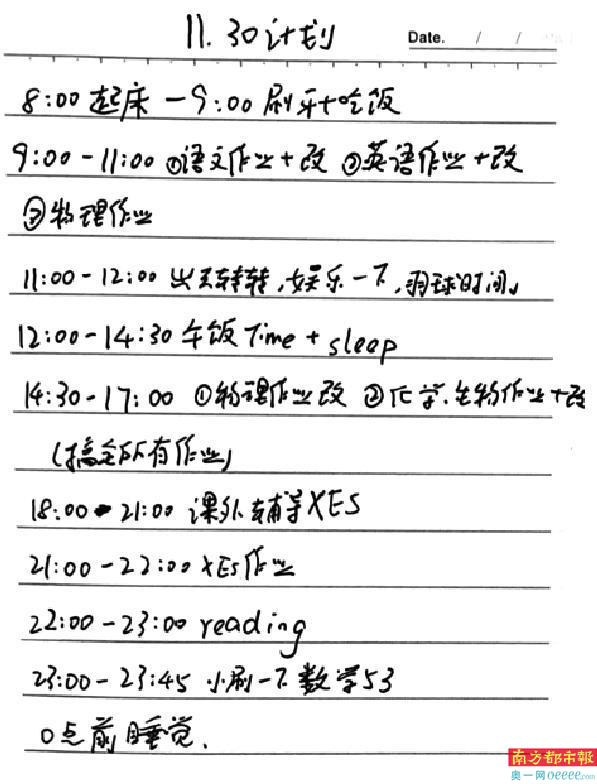 11.30计划
Date. / /
8:00起床-9:00刷牙+吃饭
9:00-11:00①语文作业+改 ②英语作业+改
③物理作业
11:00-12:00 出去转转,娱乐一下,羽球时间。
12:00-14:30 午饭Time + sleep
14:30-17:00 ①物理作业改 ②化学、生物作业+改
(搞定所有作业)
18:00-21:00 课外辅导XES
21:00-22:00 XEs作业
22:00-23:00 reading
23:00-23:45 小刷一下数学53
0点前睡觉.
南方都市報
奥一网oeeee.com